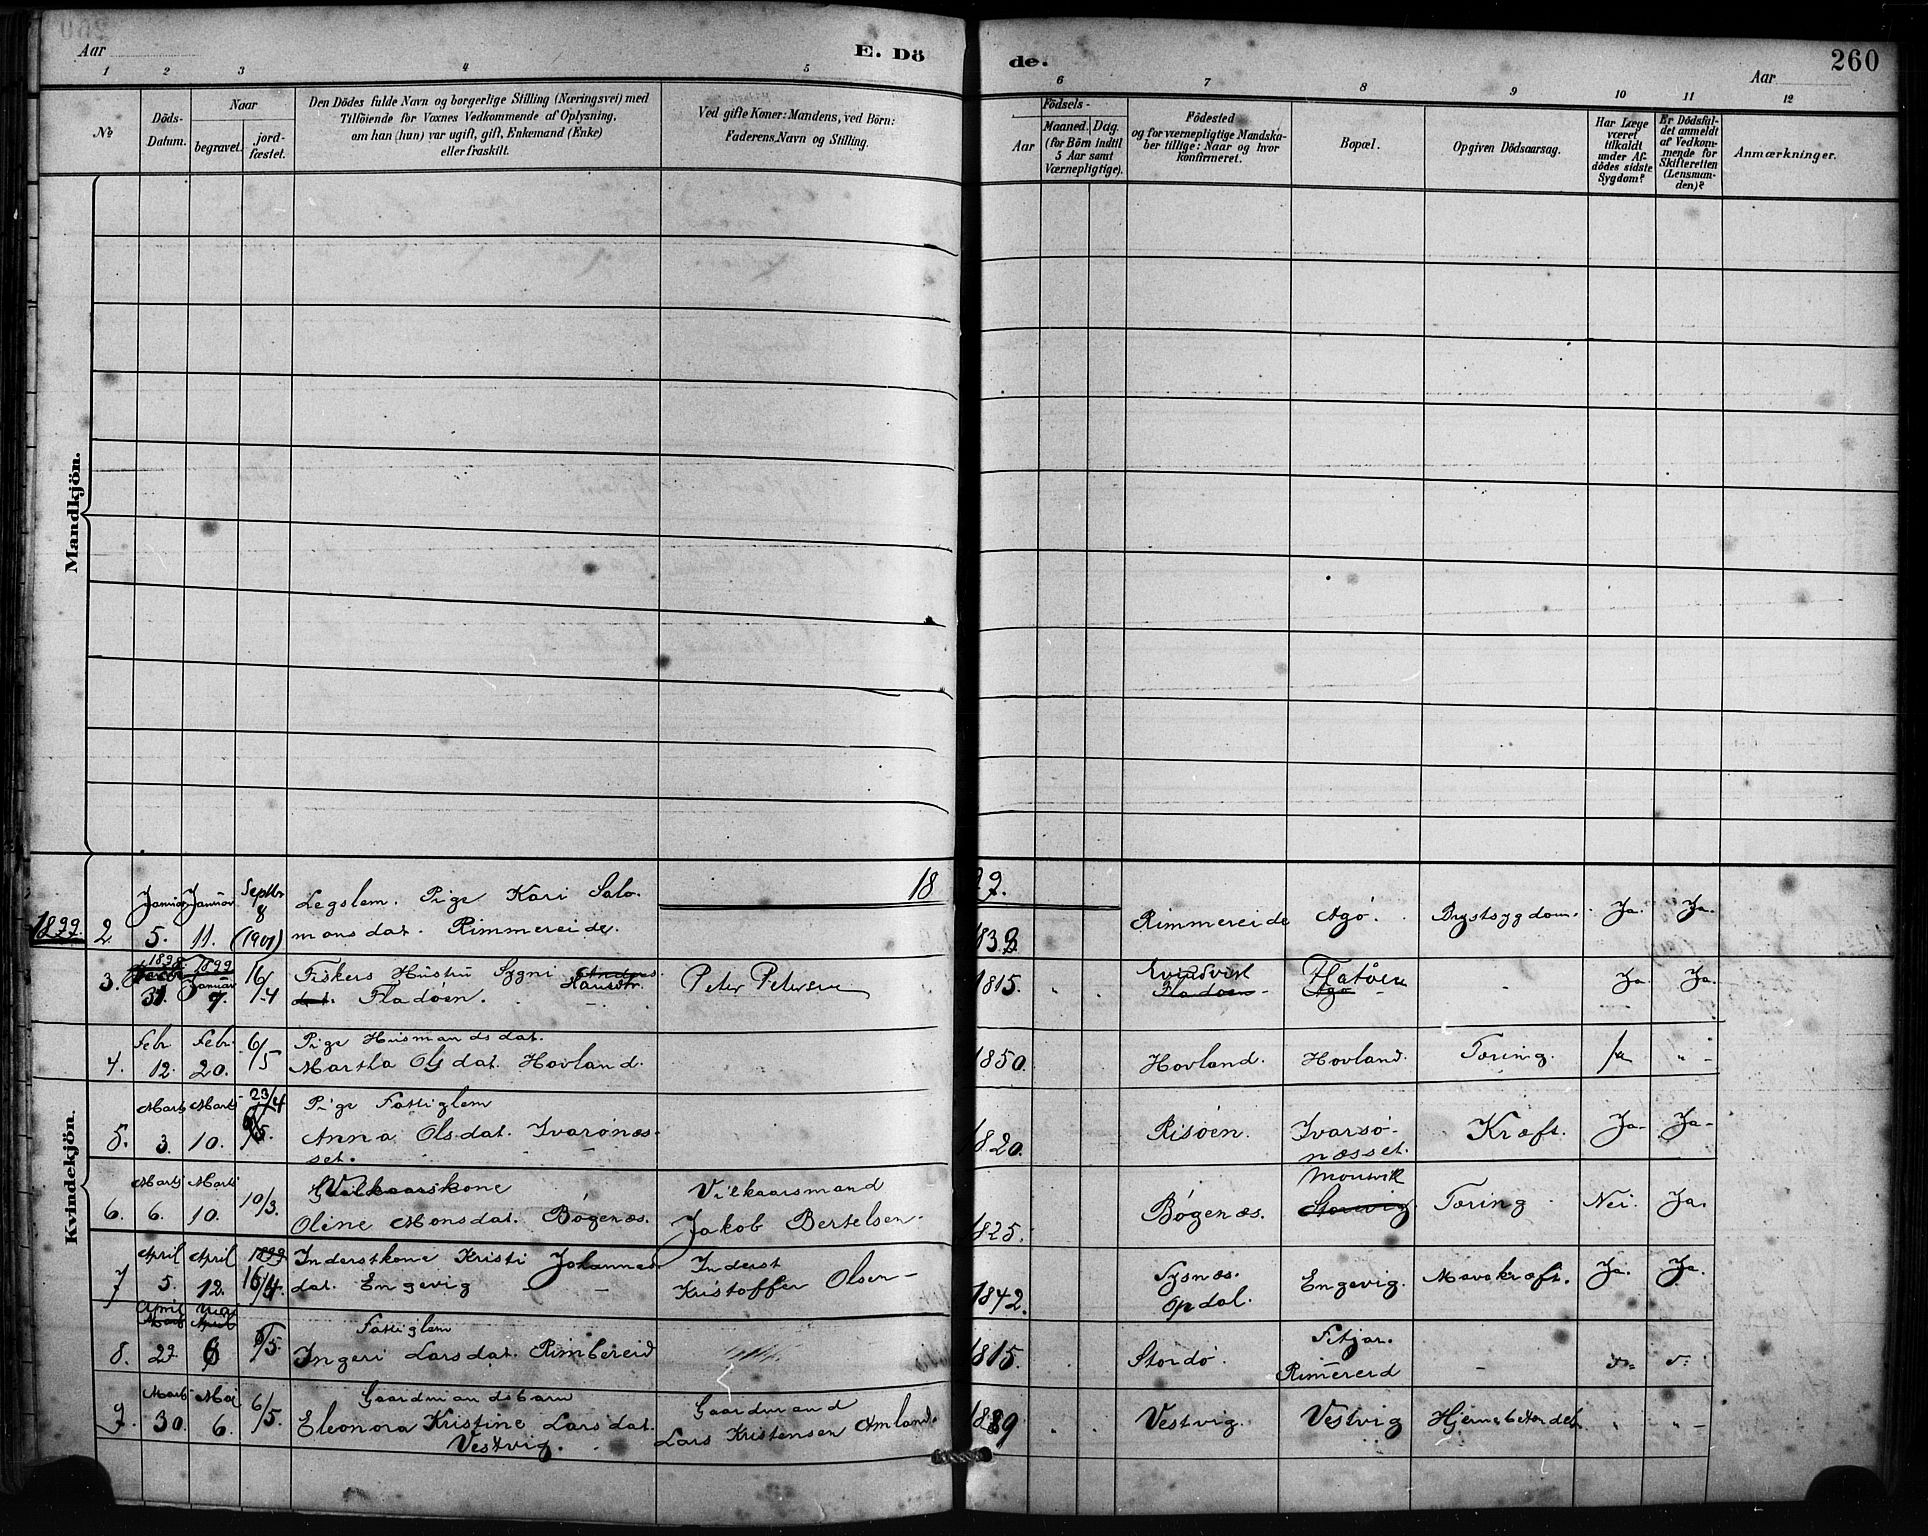 Aar
E. Dö
de.
Aar
260
1 2 3 4 5 6 7 8 9 10 11 12
No
Döds-
Datum.
Naar
begravet.
jord-
fæstet.
Den Dödes fulde Navn og borgerlige Stilling (Næringsvei) med
Tilföiende for Voxnes Vedkommende af Oplysning,
om han (hun) var ugift, gift, Enkemand (Enke)
eller fraskilt.
Ved gifte Koner: Mandens, ved Börn:
Faderens Navn og Stilling.
Födsels-
Aar
Maaned. Dag.
(for Börn indtil
5 Aar samt
Værnepligtige).
Födested
og for værnepligtige Mandska-
ber tillige: Naar og hvor
konfirmeret.
Bopæl.
Opgiven Dödsaarsag.
Har Læge
været
tilkaldt
under Af-
dödes sidste
Sygdom?
Er Dödsfal-
det anmeldt
af Vedkom-
mende for
Skifteretten
(Lensman-
den)?
Anmærkninger.
Mandkjön.
Kvindekjön.
18 99.
1899. 2. Januar 5. Januar 11. Septbr 8 (1901)
Legslem. Pige Kari Salo-
monsdat. Rimmereide.
Rimmereide Agö. Brystsygdom. Ja. Ja.
3. 1898 31. 1899 Januar 7. 16/4
Fiskers Hustru Sygni Hansdtr.
Fladöen.
Peter Petersen
1815. Evindvik Fladöen Flatöen Agö Ja. Ja.
4. Febr. 12. Febr. 20. 6/5
Pige Husmandsdat.
Martha Olsdat. Hovland.
1850. Hovland. Hovland. Tæring. Ja " -
5. Marts 3. Marts 10. 23/4
Pige Fattiglem
Anna Olsdat. Ivarsnæs-
set.
1820. Risöen. Ivarsö-
næsset. Kræft. Ja- Ja-
6. Marts 6. Marts 10. 10/3.
Vilkaarskone
Oline Monsdat. Bögenæs.
Vilkaarsmand
Jakob Bertelsen-
1825. Bögenæs. Mousvik Storevig. Tæring Nei. Ja.
7 April 5. April 12. 1899 16/4
Inderstkone Kristi Johannes-
dat. Engevig
Inderst
Kristoffer Olsen-
1842. Sysnæs.
Opdal. Engevig. Mavekræft. Ja. Ja.
8. April 29. Mai 6 6/5.
Fattiglem
Ingeri Larsdat. Rimbereid
1815. Stordö. Fitjar.
Rimereid -
9. Marts 30. Mai 6. 6/5.
Gaardmandsbarn
Eleonora Kristine Larsdat.
Vestvig.
Gaardmand
Lars Kristensen Amland.
1889 Vestvig. Vestvig Hjernebetændel. " " -